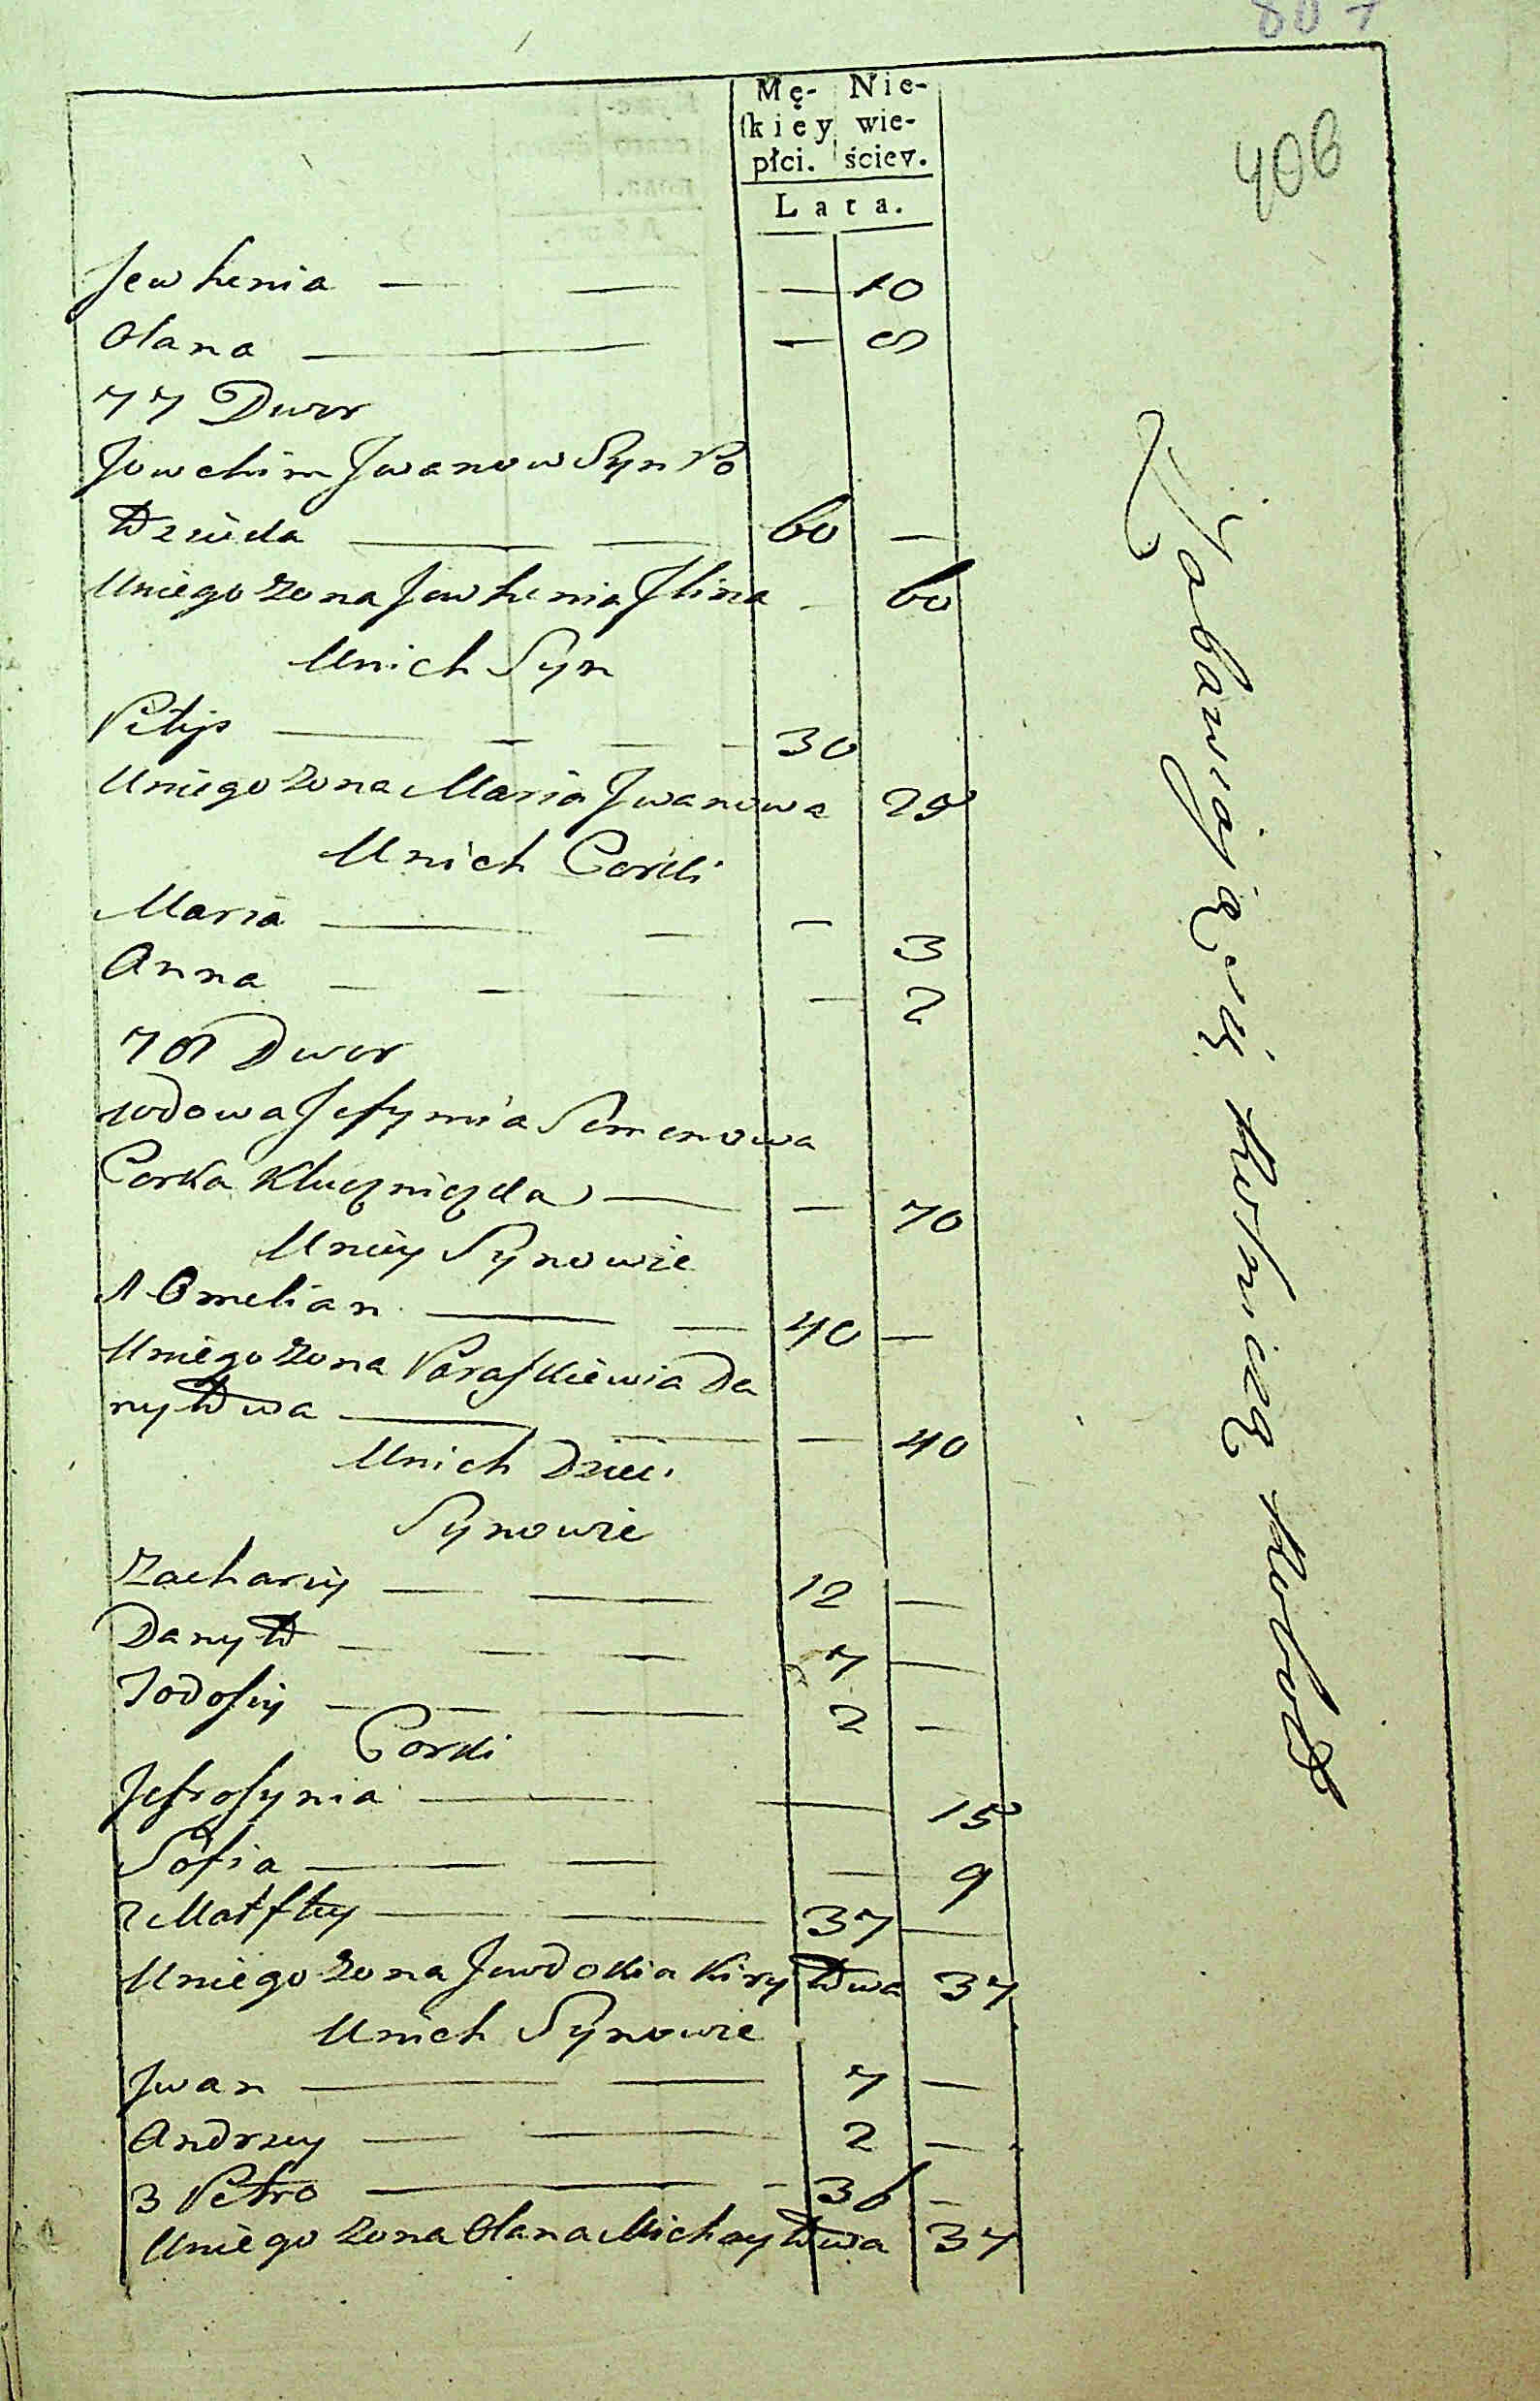 406
Mę- Nie-
skiey wie-
płci. ściey.
Lata.
Jewhenia — — — 10
Olana — — — 8
77 Dwor
Jowchim Jwanow Syn Po
łłziuda — — 60 —
Uniego zona Jewhenia Jlina — 60
Unich Syn
Pilip — — — — 30
Uniego zona Maria Jwanowa 25
Unich Corki
Maria — — — 3
Anna — — — — 2
78 Dwor
wdowa Jefymia Semenowa
Corka Kluczniczka — — 70
Uniey Synowie
1 Omelian — — 40 —
Uniego zona Paraskiewia Da
nyłłowa — — — 40
Unich Dzieci
Synowie
Zachariy — — 12 —
Danyłł — — — 7 —
Todosiy — — — 2 —
Corki
Jefrosynia — — 15
Sofia — — — 9
2 Matfiey — — 37 —
Uniego zona Jewdokia Kiryłłowa 37
Unich Synowie
Jwan — — 7 —
Andrzey — — 2 —
3 Petro — — 36 —
Uniego zona Olana Michayłłowa 37
Zabawiaiącysię Rolniczą Robotą